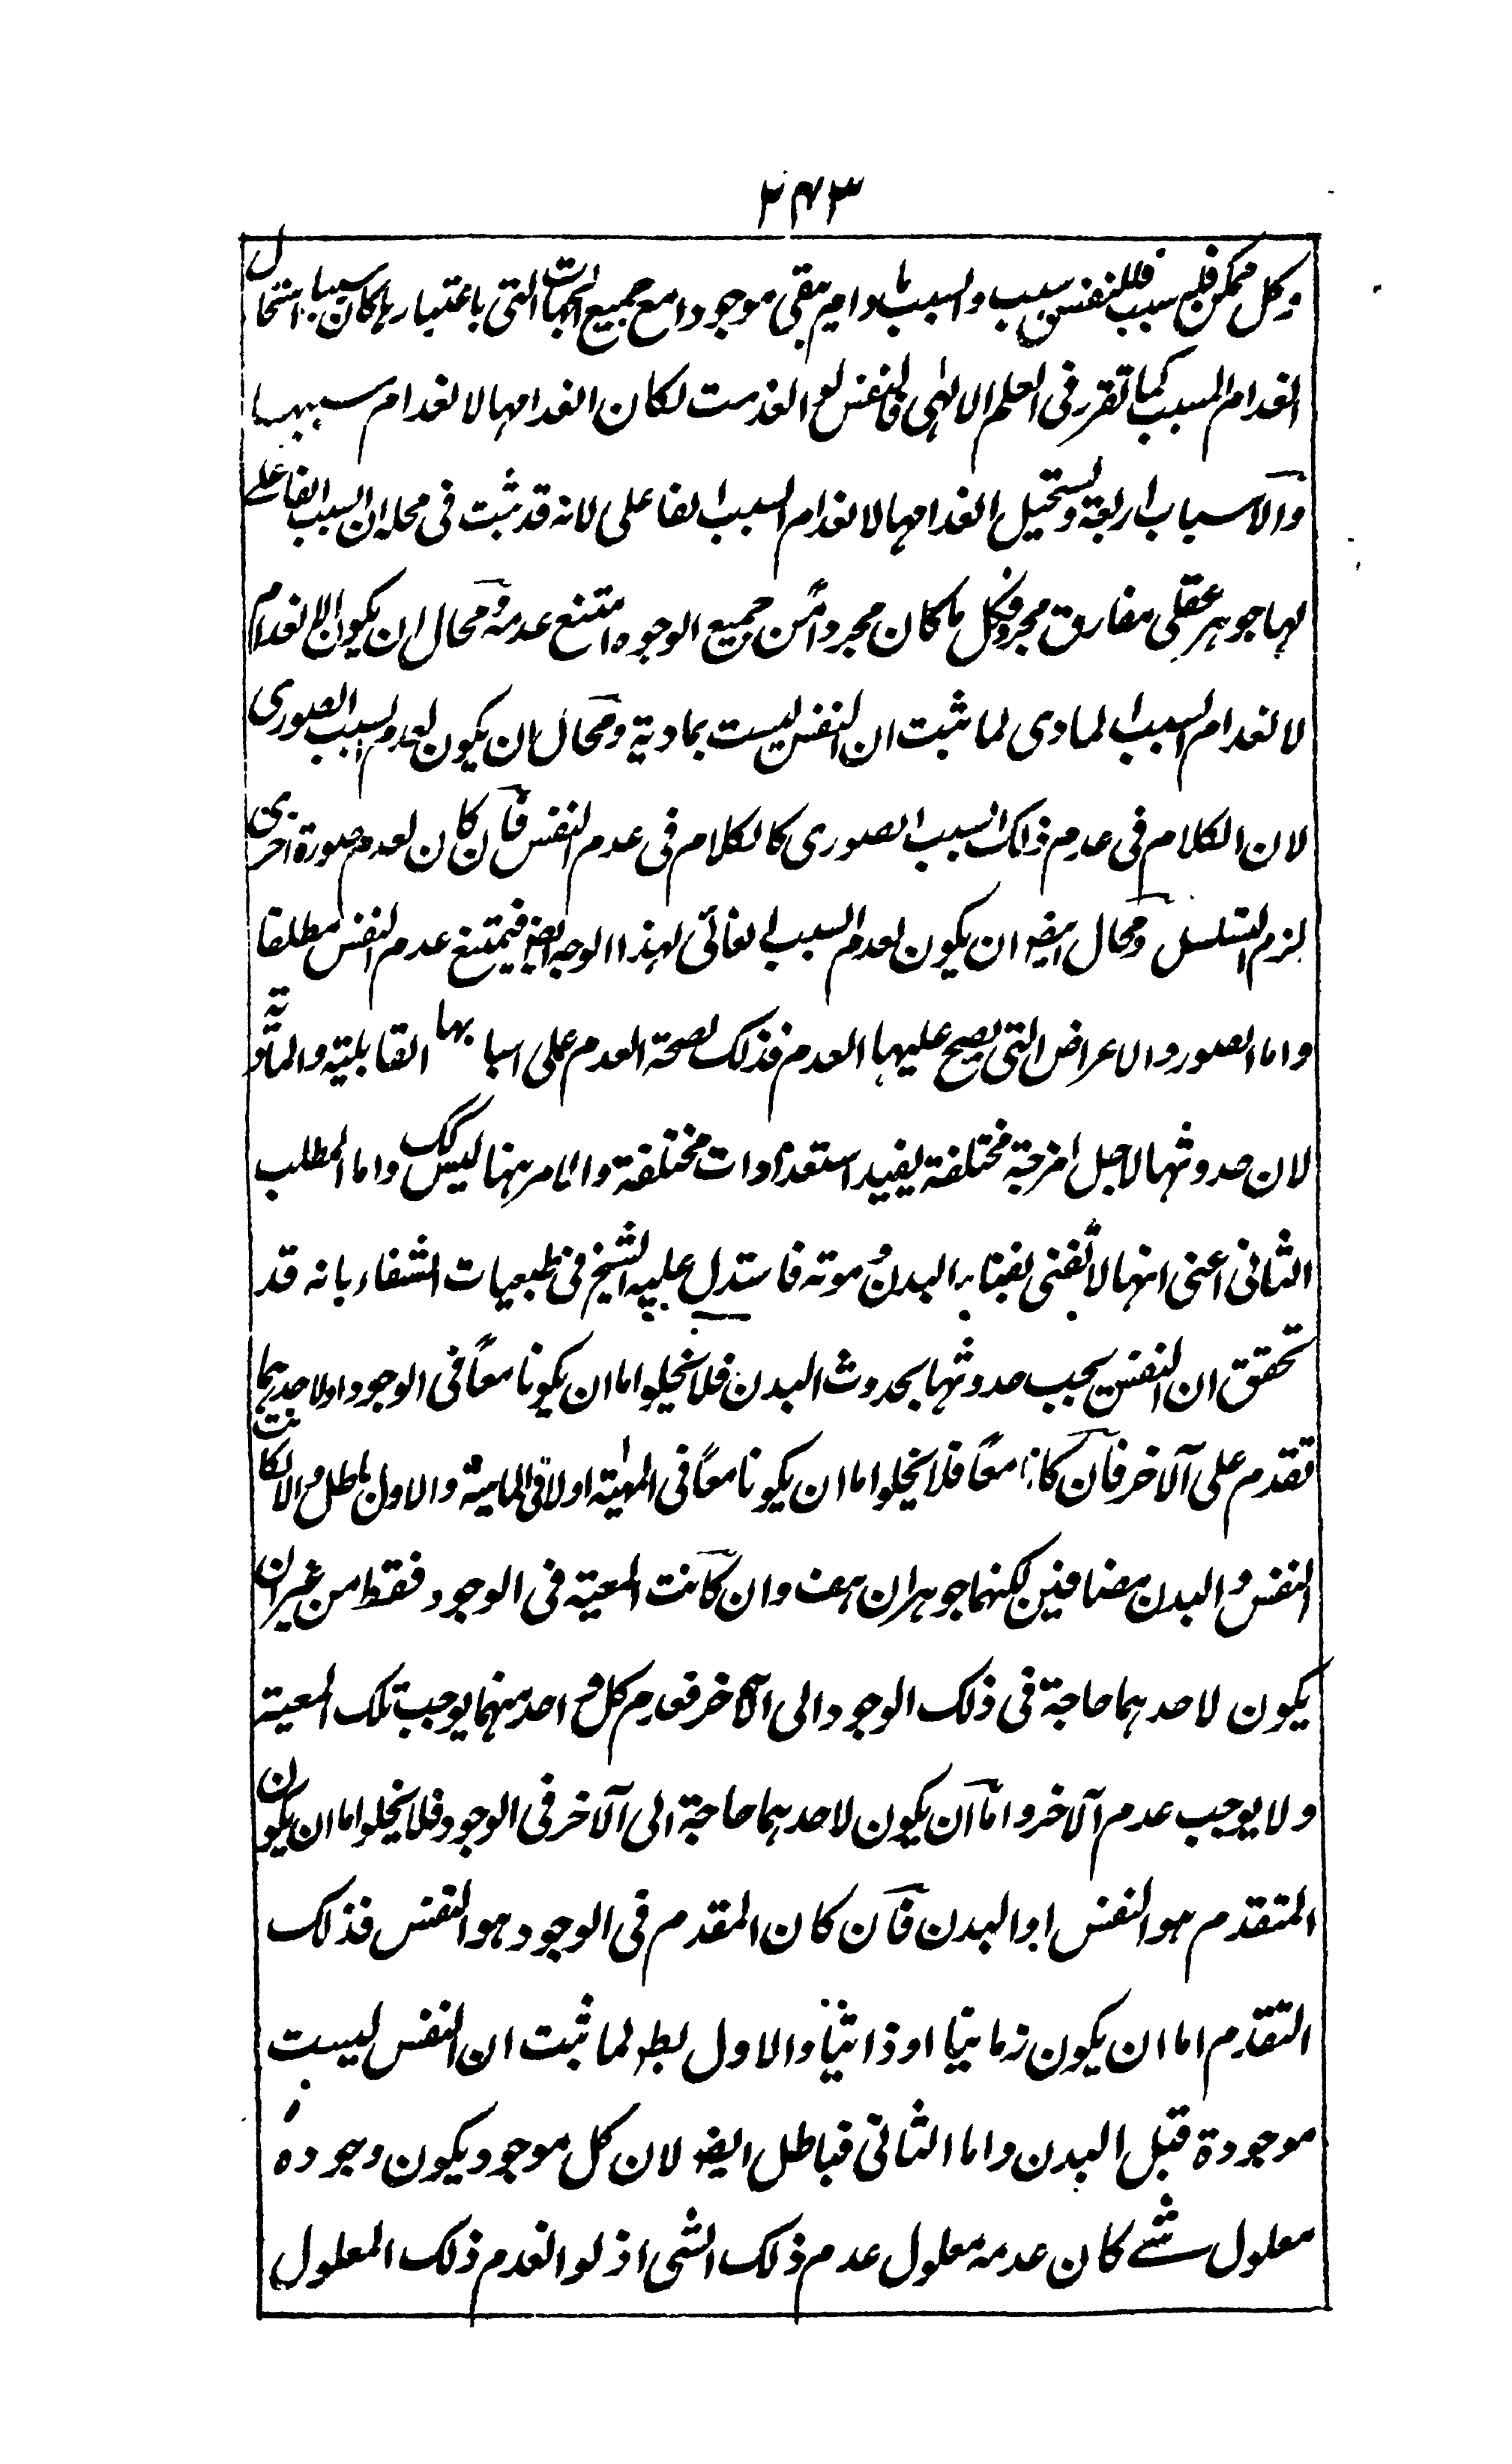 ٢٤٣
وكل ممكن فله سبب فللنفس سبب والسبب ما دام يبقى موجودا مع جميع الجهات التى باعتبارها كان سببا استحال
انعدام المسبب كما تقرر فى العلم الالهى فالنفس لو انعدمت لكان انعدامها لانعدام سببها
والاسباب اربعة ويستحيل انعدامها لانعدام السبب الفاعلى لانه قد ثبت فى محله ان السبب الفاعلے
لها جوهر عقلى مفارق مجرد فكل ما كان مجردا من جميع الوجوه امتنع عدمه ومحال ان يكون الانعدام
لانعدام السبب المادى لما ثبت ان النفس ليست بمادية ومحال ان يكون لعدم السبب الصورى
لان الكلام فى عدم ذلك السبب الصورى كالكلام فى عدم النفس فان كان لعدم صورة اخرى
لزم التسلسل ومحال ايضو ان يكون لعدم السبب الغائى لهذا الوجه ايضو فيمتنع عدم النفس مطلقا
واما الصور والاعراض التى يصح عليها العدم فذلك لصحة العدم على اسبابها القابلية والمادية
لان حدوثها لاجل امزجة مختلفة يفيد استعدادات مختلفة والامر ههنا ليس كك واما المطلب
الثانى اعنى انها لا تفنى بفناء البدن وموته فاستدل عليه الشيخ فى طبعيات الشفاء بانه قد
تحقق ان النفس يجب حدوثها بحدوث البدن فلا يخلوا اما ان يكونا معًا فى الوجود او لاحدهما
تقدم على الآخر فان كانا معًا فلا يخلوا اما ان يكونا معًا فى المهية اولا فى الماهية والاول باطل والا لكانت
النفس والبدن مضافين لكنهما جوهران هف وان كانت المعية فى الوجود فقط من غير ان
يكون لاحدهما حاجة فى ذلك الوجود الى الآخر فعدم كل واحد منهما يوجب تلك المعية
ولا يوجب عدم الآخر واما ان يكون لاحدهما حاجة الى الآخر فى الوجود فلا يخلوا اما ان يكون
المتقدم هو النفس او البدن فان كان المقدم فى الوجود هو النفس فذلك
التقدم اما ان يكون زمانيا او ذاتيا والاول بطو لما ثبت ان النفس ليست
موجودة قبل البدن واما الثانى فباطل ايضو لان كل موجود يكون وجوده
معلول شے كان عدمه معلول عدم ذلك الشى اذ لو انعدم ذلك المعلول